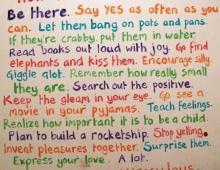 Be there. Say yes as often as you
can. Let them bang on pots and pans.
If they're crabby, put them in water.
Read books out loud with joy. Go find
elephants and kiss them. Encourage silly.
Giggle alot. Remember how really small
they are. Search out the positive.
Keep the gleam in your eye. Go see a
movie in your pyjamas. Teach feelings.
Realize how important it is to be a child.
Plan to build a rocketship. Stop yelling.
Invent pleasures together. Surprise them.
Express your love. A lot.